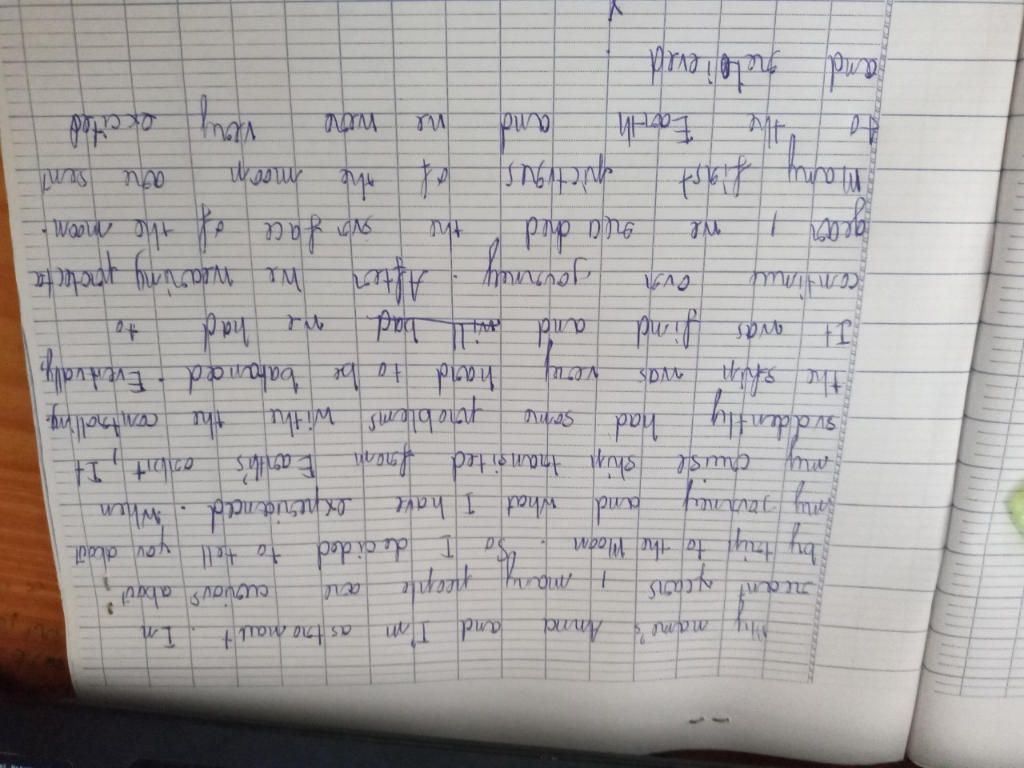 My name's Anna and I'm astronaut. In
recant years, many people are curious about
by trip to the Moon. So I decided to tell you about
my journey and what I have experidanced. When
my cruise ship transited from Earth's orbit, It
suddently had some problems withe the controlling.
the ship was very hard to be bahanced. Eventually,
It was find and will had we had to
continue our journey. After we wearing protecte
gear, we reacded the surface of the moon.
Many first pictures of the moon are sent
to the Earth and we were very excited
and retrieved.